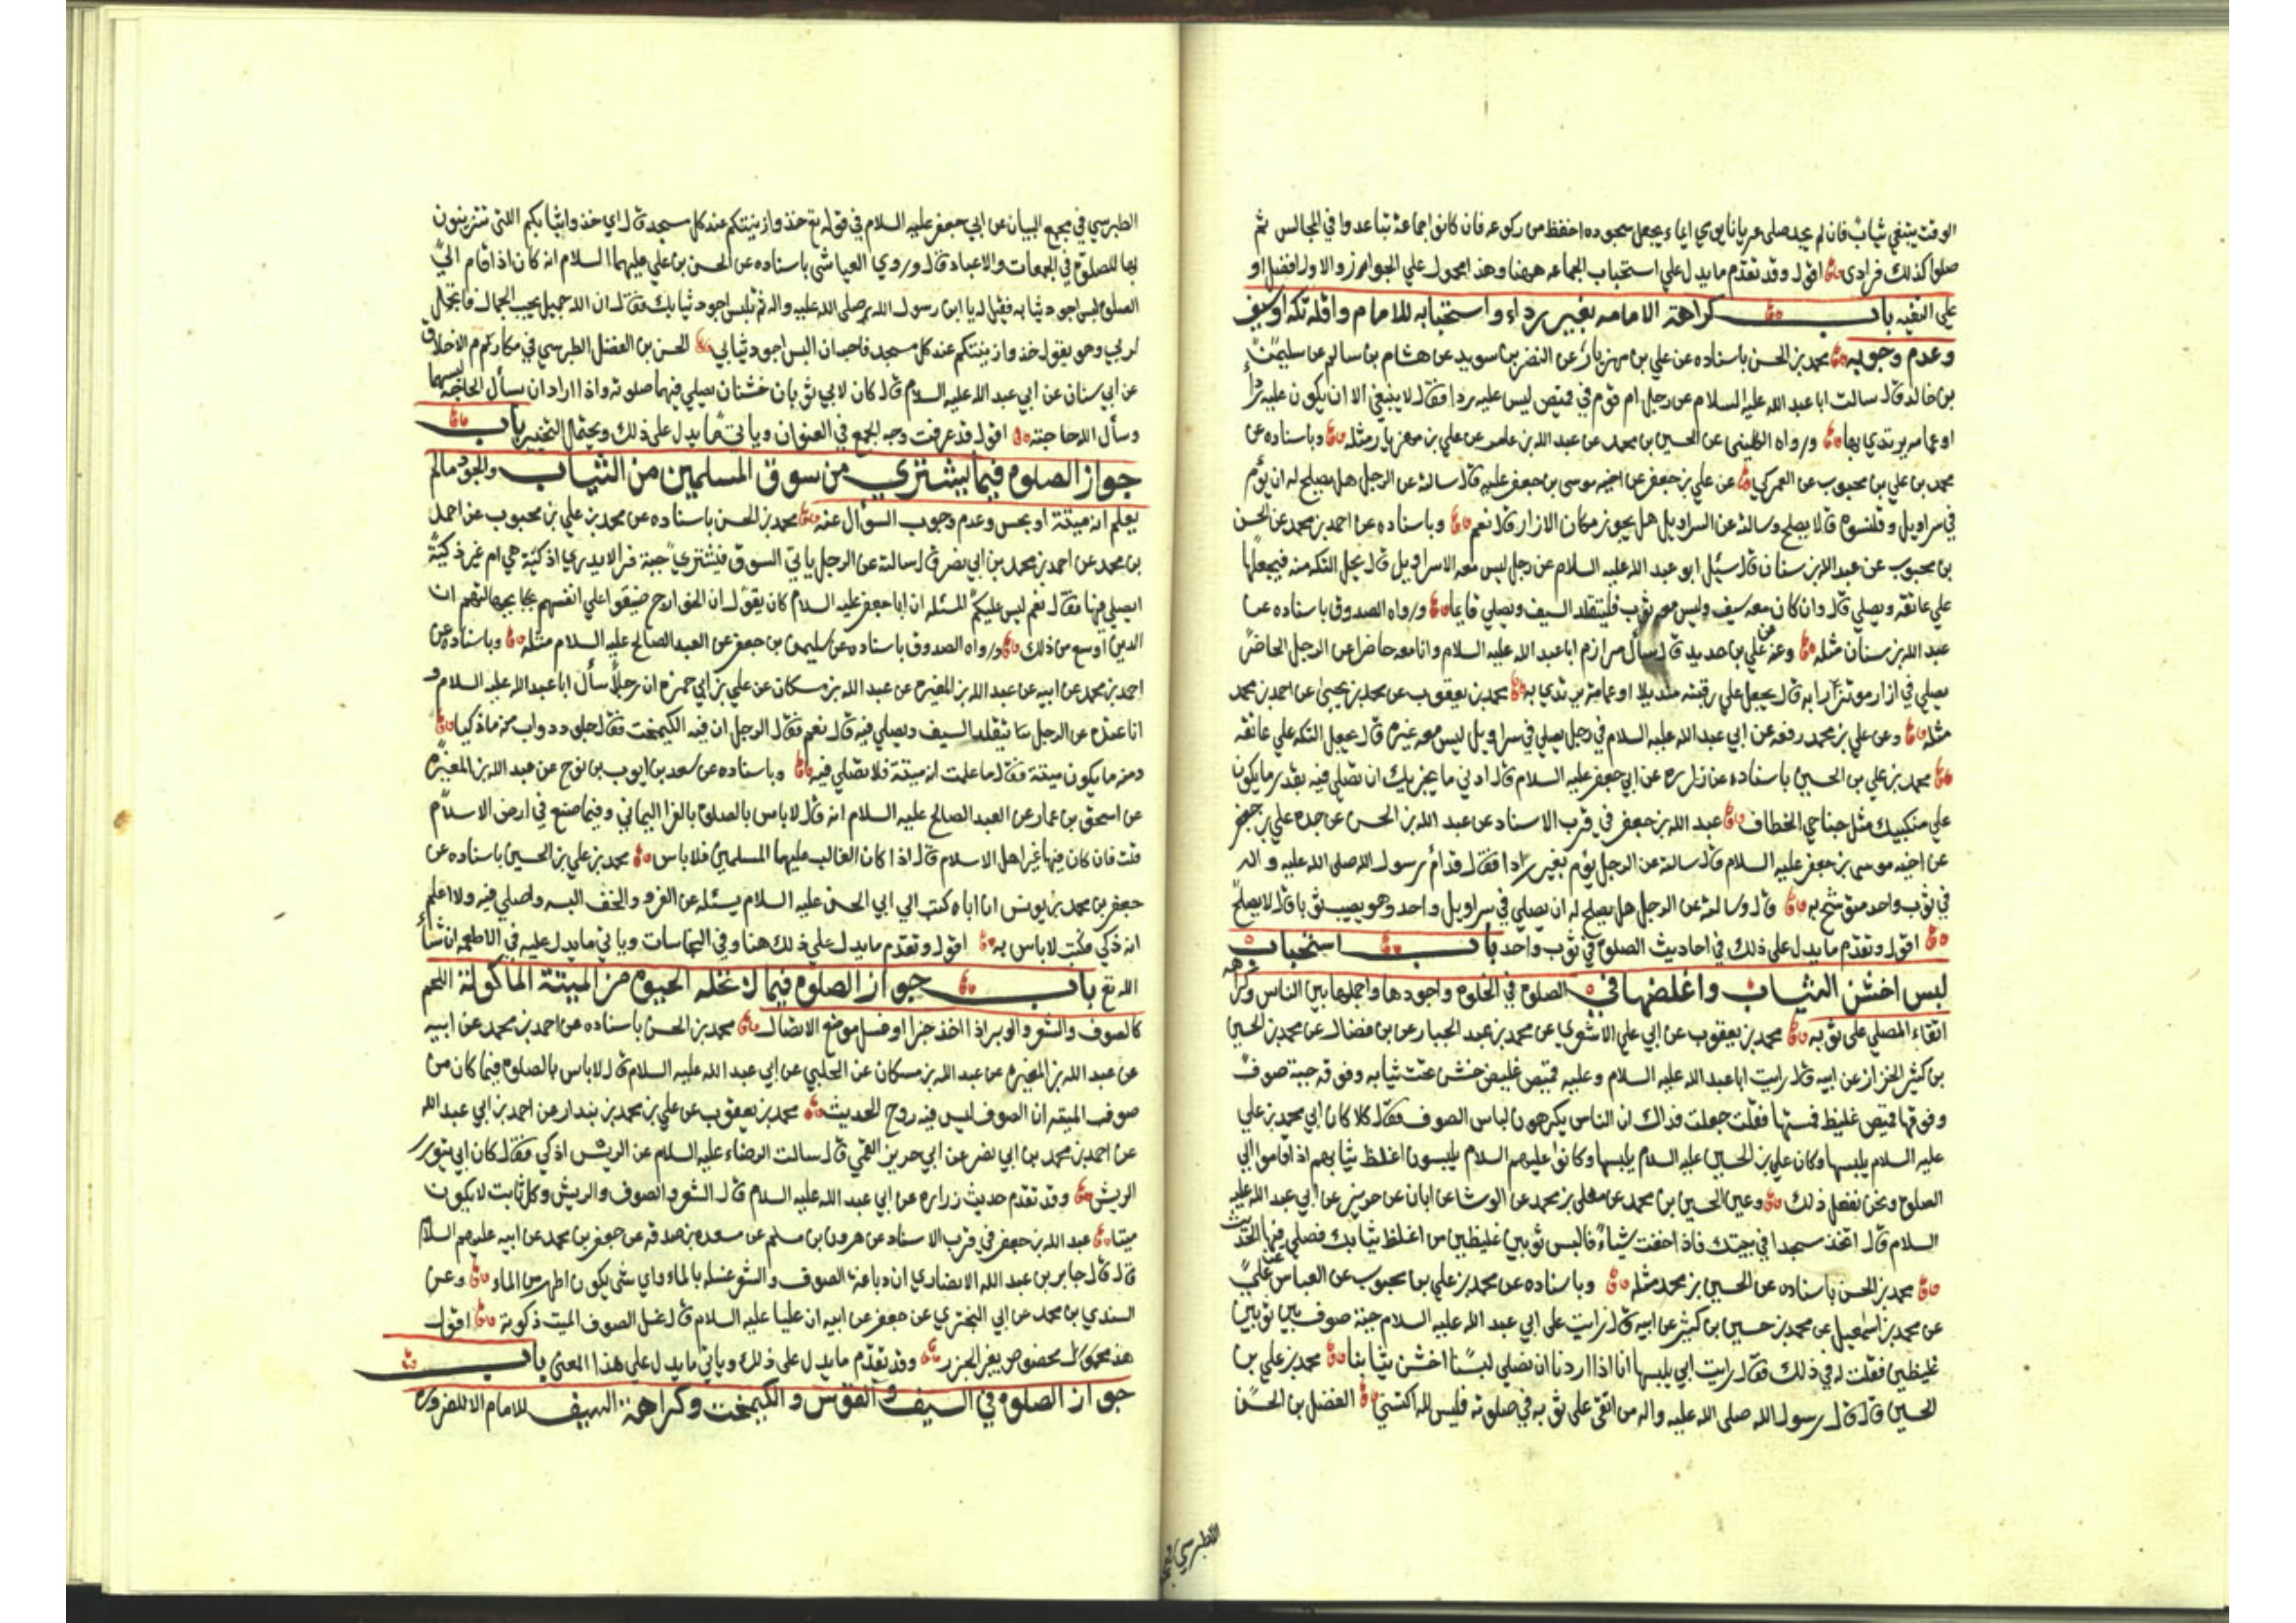 الوقت يبتغي ثيابا فان لم يجد صلى عريانا يومي ايماء يجعل سجوده اخفظ من ركوعه فان كانوا جماعة تباعدوا في المجالس ثم
صلوا كذلك فرادى اقول وقد تقدم ما يدل علي استحباب الجماعه ههنا وهذا محمول علي الجواز والاول افضل او
علي التقيه باب كراهة الامامه بغير رداء واستحبابه للامام واقله تكه او سيف
وعدم وجوبه محمد بن الحسن باسناده عن علي بن مهزيار عن النضر بن سويد عن هشام بن سالم عن سليمن
بن خالد قال سالت ابا عبد الله عليه السلام عن رجل ام قوم في قميص ليس عليه ردا فقال لا ينبغي الا ان يكون عليه ردا
او عمامه يرتدي بها ورواه الكليني عن الحسين بن محمد عن عبد الله بن عامر عن علي بن مهزيار مثله وباسناده عن
محمد بن علي بن محبوب عن العمركي عن علي بن جعفر عن اخيه موسى بن جعفر عليه قال سالته عن الرجل هل يصلح له ان يؤم
في سراويل وقلنسوه قال لا يصلح وسالته عن السراويل هل يجوز مكان الازار قال نعم وباسناده عن احمد بن محمد عن الحسن
بن محبوب عن عبد الله بن سنان قال سئل ابو عبد الله عليه السلام عن رجل ليس معه الا سراويل قال يحل التكه منه فيجعلها
علي عاتقه ويصلي قال وان كان معه سيف وليس معه ثوب فليتقلد السيف ويصلي قايما ورواه الصدوق باسناده عن
عبد الله بن سنان مثله وعنه عن علي بن حديد قال سأل مرازم ابا عبد الله عليه السلام وانا معه حاضر عن الرجل الحاضر
يصلي في ازار موتزرا به قال يجعل علي رقبته منديلا او عمامة يرتدي به محمد بن يعقوب عن محمد بن يحيى عن احمد بن محمد
مثله وعن علي بن محمد رفعه عن ابي عبد الله عليه السلام في رجل يصلي في سراويل ليس معه غيره قال يجعل التكه علي عاتقه
محمد بن علي بن الحسين باسناده عن زراره عن ابي جعفر عليه السلام قال ادني ما يجزيك ان تصلي فيه بقدر ما يكون
علي منكبيك مثل جناحي الخطاف عبد الله بن جعفر في قرب الاسناد عن عبد الله بن الحسن عن جده علي بن جعفر
عن اخيه موسى بن جعفر عليه السلام قال سالته عن الرجل يؤم بغير ردا فقال قد أم رسول الله صلى الله عليه واله
في ثوب واحد متوشح به قال وسالته عن الرجل هل يصلح له ان يصلي في سراويل واحد وهو يصيب ثوبا قال لا يصلح
اقول وتقدم ما يدل علي ذلك في احاديث الصلوة في ثوب واحد باب استحباب
لبس اخشن الثياب واغلضها في الصلوة في الخلوة واجودها واجملها بين الناس وكراهة
اتقاء المصلي على ثوبه محمد بن يعقوب عن ابي علي الاشعري عن محمد بن عبد الجبار عن بن فضال عن محمد بن الحسين
بن كثير الخزاز عن ابيه قال رايت ابا عبد الله عليه السلام وعليه قميص غليض خشن تحت ثيابه وفوقه جبة صوف
وفوقها قميص غليظ فمستها فقلت جعلت فداك ان الناس يكرهون لباس الصوف فقال كلا كان ابي محمد بن علي
عليه السلام يلبسها وكان علي بن الحسين عليه السلام يلبسها وكانوا عليهم السلام يلبسون اغلظ ثيابهم اذا قاموا الي
الصلوة ونحن نفعل ذلك وعن الحسين بن محمد عن معلي بن محمد عن الوشا عن ابان عن حريز عن ابي عبد الله عليه
السلام قال اتخذ مسجدا في بيتك فاذا خفت شياء فالبس ثوبين غليظين من اغلظ ثيابك فصلي فيها الحديث
محمد بن الحسن باسناده عن الحسين بن محمد مثله وباسناده عن محمد بن علي بن محبوب عن العباس عن علي
عن محمد بن اسمعيل عن محمد بن حسين بن كثير عن ابيه قال رايت على ابي عبد الله عليه السلام جبة صوف بين ثوبين
غليظين فقلت له في ذلك فقال رايت ابي يلبسها انا اذا اردنا ان نصلي لبسنا اخشن ثيابنا محمد بن علي بن
الحسين قال قال رسول الله صلى الله عليه واله من اتقى على ثوبه في صلوته فليس لله اكتسي الفضل بن الحسن
الطبرسي في مجمع
الطبرسي في مجمع البيان عن ابي جعفر عليه السلام في قوله تع خذوا زينتكم عند كل مسجد قال اي خذوا ثيابكم اللتي تتزينون
بها للصلوة في الجمعات والاعياد قال وروي العياشي باسناده عن الحسن بن علي عليهما السلام انه كان اذا قام الي
الصلوة لبس اجود ثيابه فقيل له يا ابن رسول الله صلى الله عليه واله لم تلبس اجود ثيابك فقال ان الله جميل يحب الجمال فاتجمل
لربي وهو يقول خذوا زينتكم عند كل مسجد فاحب ان البس اجود ثيابي الحسن بن الفضل الطبرسي في مكارم الاخلاق
عن ابي سنان عن ابي عبد الله عليه السلام قال كان لابي ثوبان خشنان يصلي فيهما صلوته واذا اراد ان يسأل الحاجه لبسهما
وسأل الله حاجته اقول قد عرفت وجه الجمع في العنوان وياتي ما يدل على ذلك ويحتمل التخيير باب
جواز الصلوة فيما يشتري من سوق المسلمين من الثياب والجلود ما لم
يعلم انه ميتة او نجس وعدم وجوب السؤال عنه محمد بن الحسن باسناده عن محمد بن علي بن محبوب عن احمد
بن محمد عن احمد بن محمد بن ابي نصر قال سالته عن الرجل ياتي السوق فيشتري جبة فرا لا يدري اذكية هي ام غير ذكية
ايصلي فيها فقال نعم ليس عليكم المسئله ان ابا جعفر عليه السلام كان يقول ان الخوارج ضيقوا علي انفسهم بجهالتهم ان
الدين اوسع من ذلك ورواه الصدوق باسناده عن سليمن بن جعفر عن العبد الصالح عليه السلام مثله وباسناده عن
احمد بن محمد عن ابيه عن عبد الله بن المغيره عن عبد الله بن مسكان عن علي بن ابي حمزه ان رجلا سأل ابا عبد الله عليه السلام و
انا عنده عن الرجل يتقلد السيف ويصلي فيه قال نعم فقال الرجل ان فيه الكيمخت فقال جلود دواب منه ما ذكيا
ومنه ما يكون ميتة فقال ما علمت انه ميتة فلا تصلي فيه وباسناده عن سعد بن ايوب بن نوح عن عبد الله بن المغيره
عن اسحق بن عمار عن العبد الصالح عليه السلام انه قال لا باس بالصلوة بالفرا اليماني وفيما صنع في ارض الاسلام
قلت فان كان فيها غير اهل الاسلام قال اذا كان الغالب عليها المسلمين فلا باس محمد بن علي بن الحسين باسناده عن
جعفر بن محمد بن يونس ان اباه كتب الي ابي الحسن عليه السلام يسئله عن الفرو والخف البسه واصلي فيه ولا اعلم
انه ذكي فكتب لا باس به اقول وتقدم ما يدل علي ذلك هنا وفي النجاسات وياتي ما يدل عليه في الاطعمه ان شأ
الله تع باب جواز الصلوة فيما لا تحله الحيوة من الميتة الماكولة اللحم
كالصوف والشعر والوبر اذا اخذ جزا او غسل موضع الاتصال محمد بن الحسن باسناده عن احمد بن محمد عن ابيه
عن عبد الله بن المغيره عن عبد الله بن مسكان عن الحلبي عن ابي عبد الله عليه السلام قال لا باس بالصلوة فيما كان من
صوف الميته ان الصوف ليس فيه روح الحديث محمد بن يعقوب عن علي بن محمد بن بندار عن احمد بن ابي عبد الله
عن احمد بن محمد بن ابي نضر عن ابي جرير القمي قال سالت الرضاء عليه السلام عن الريش اذكي فقال كان ابي يتوسد
الريش وقد تقدم حديث زراره عن ابي عبد الله عليه السلام قال الشعر والصوف والريش وكل نابت لا يكون
ميتا عبد الله بن جعفر في قرب الاسناد عن هرون بن مسلم عن مسعده بن صدقه عن جعفر بن محمد عن ابيه عليهم السلام
قال قال جابر بن عبد الله الانصاري ان دباغة الصوف والشعر غسله بالماء واي شي يكون اطهر من الماء وعن
السندي بن محمد عن ابي البختري عن جعفر عن ابيه ان عليا عليه السلام قال غسل الصوف الميت ذكوته اقول
هذا مخصوص بغير الجز وقد تقدم ما يدل على ذلك وياتي ما يدل علي هذا المعنى باب
جواز الصلوة في السيف والقوس والكيمخت وكراهة السيف للامام الا للضروره